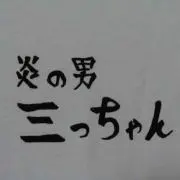 炎の男
三っちゃん